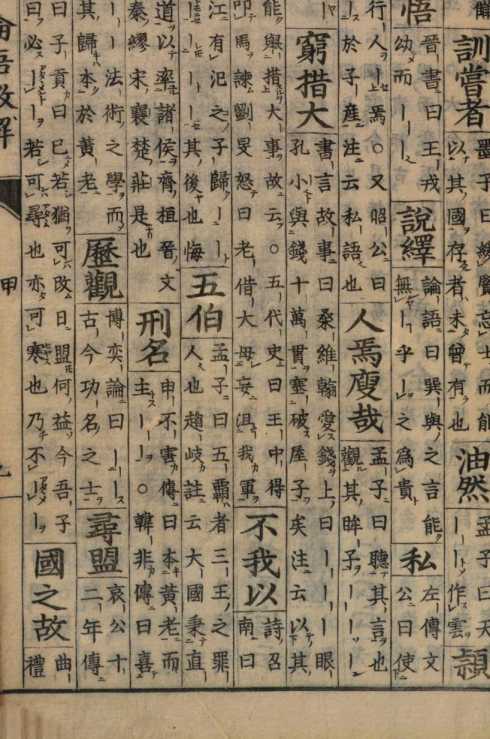 訓嘗者
墨子曰緩賢忘士而能
以其國存者未曾有也
油然
孟子曰天
丨丨作雲
悟
晉書曰王戎
幼而丨丨丨
說繹
論語曰巽與之言能
無丨乎丨之為貴
私
左傳文
公曰使
行人丨丨焉○又昭公曰
於子產注云私語也
人焉廋哉
孟子曰聽其言也
觀其眸子丨丨丨丨
窮措大
書言故事曰桑維翰愛錢上曰丨丨丨眼
孔小與錢十萬貫塞破屋子矣注云以其
能與措大事故云○五代史曰王中得
叩馬諫劉旻怒曰老借大毋妄沮我軍
不我以
詩召
南曰
江有汜之子歸丨丨
丨丨丨丨其後也悔
五伯
孟子曰五霸者三王之罪
人也趙岐註云大國秉直
道以率諸侯齊桓晉文
秦繆宋襄楚莊是也
刑名
申不害傳曰本黃老而
主丨丨○韓非傳曰喜
丨丨法術之學而
其歸本於黃老
歷觀
博奕論曰丨丨
古今功名之士
尋盟
哀公十
二年傳
曰子貢曰已若猶可改日盟何益今吾子
曰必丨丨若可尋也亦可寒也乃不丨丨
國之故
曲
禮
甲